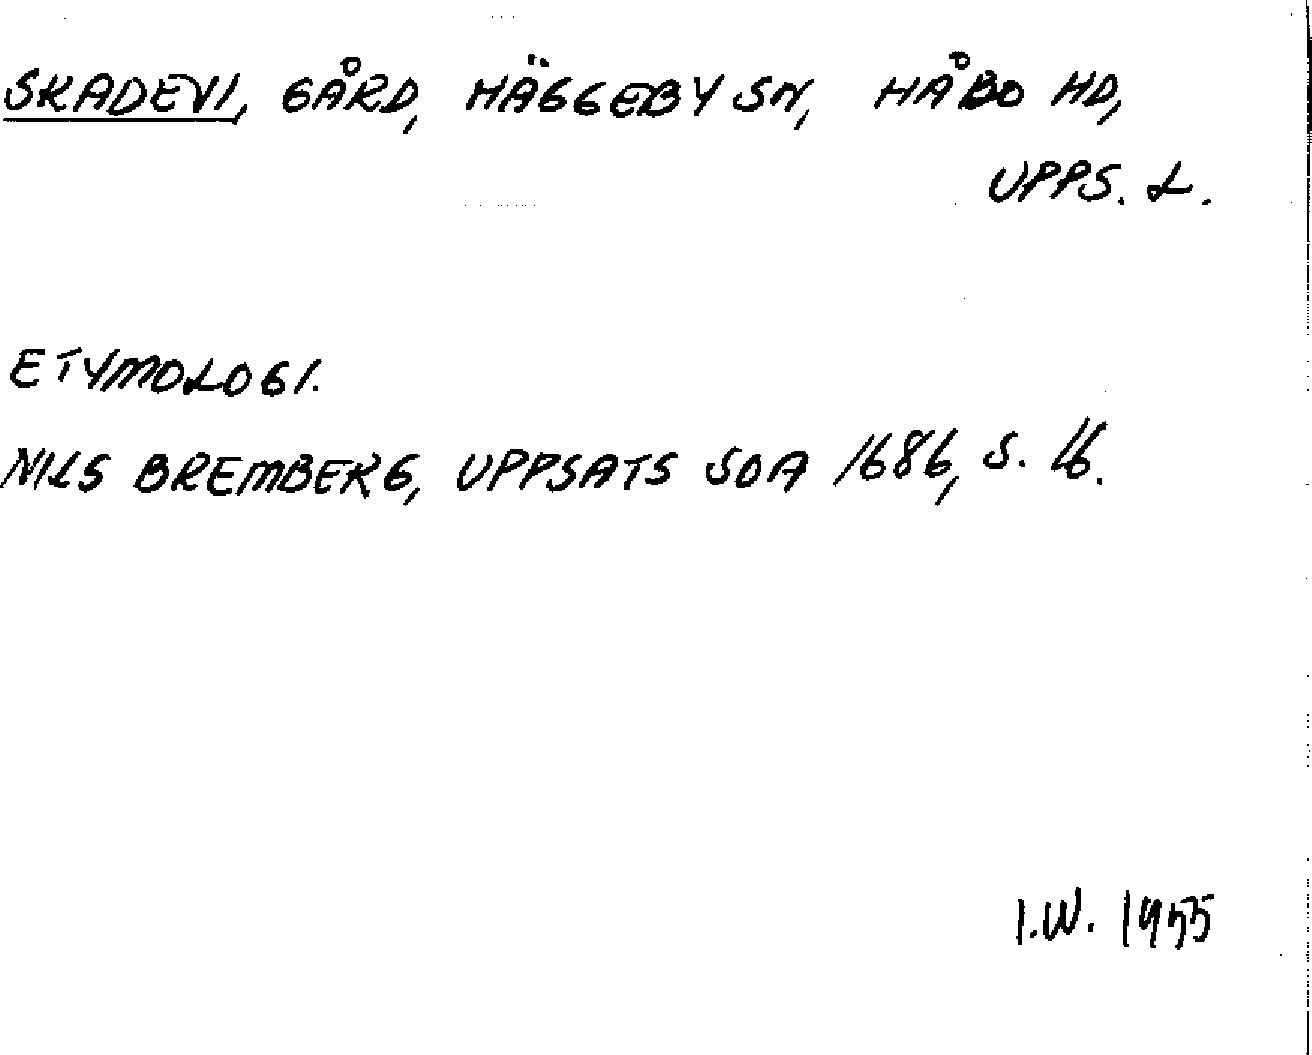 SKADEVI, GÅRD, HÄGGEBY SN, HÅBO HD,
UPPS. L.
ETYMOLOGI.
NILS BREMBERG, UPPSATS SOA 1686, S. 16.
I.W. 1955